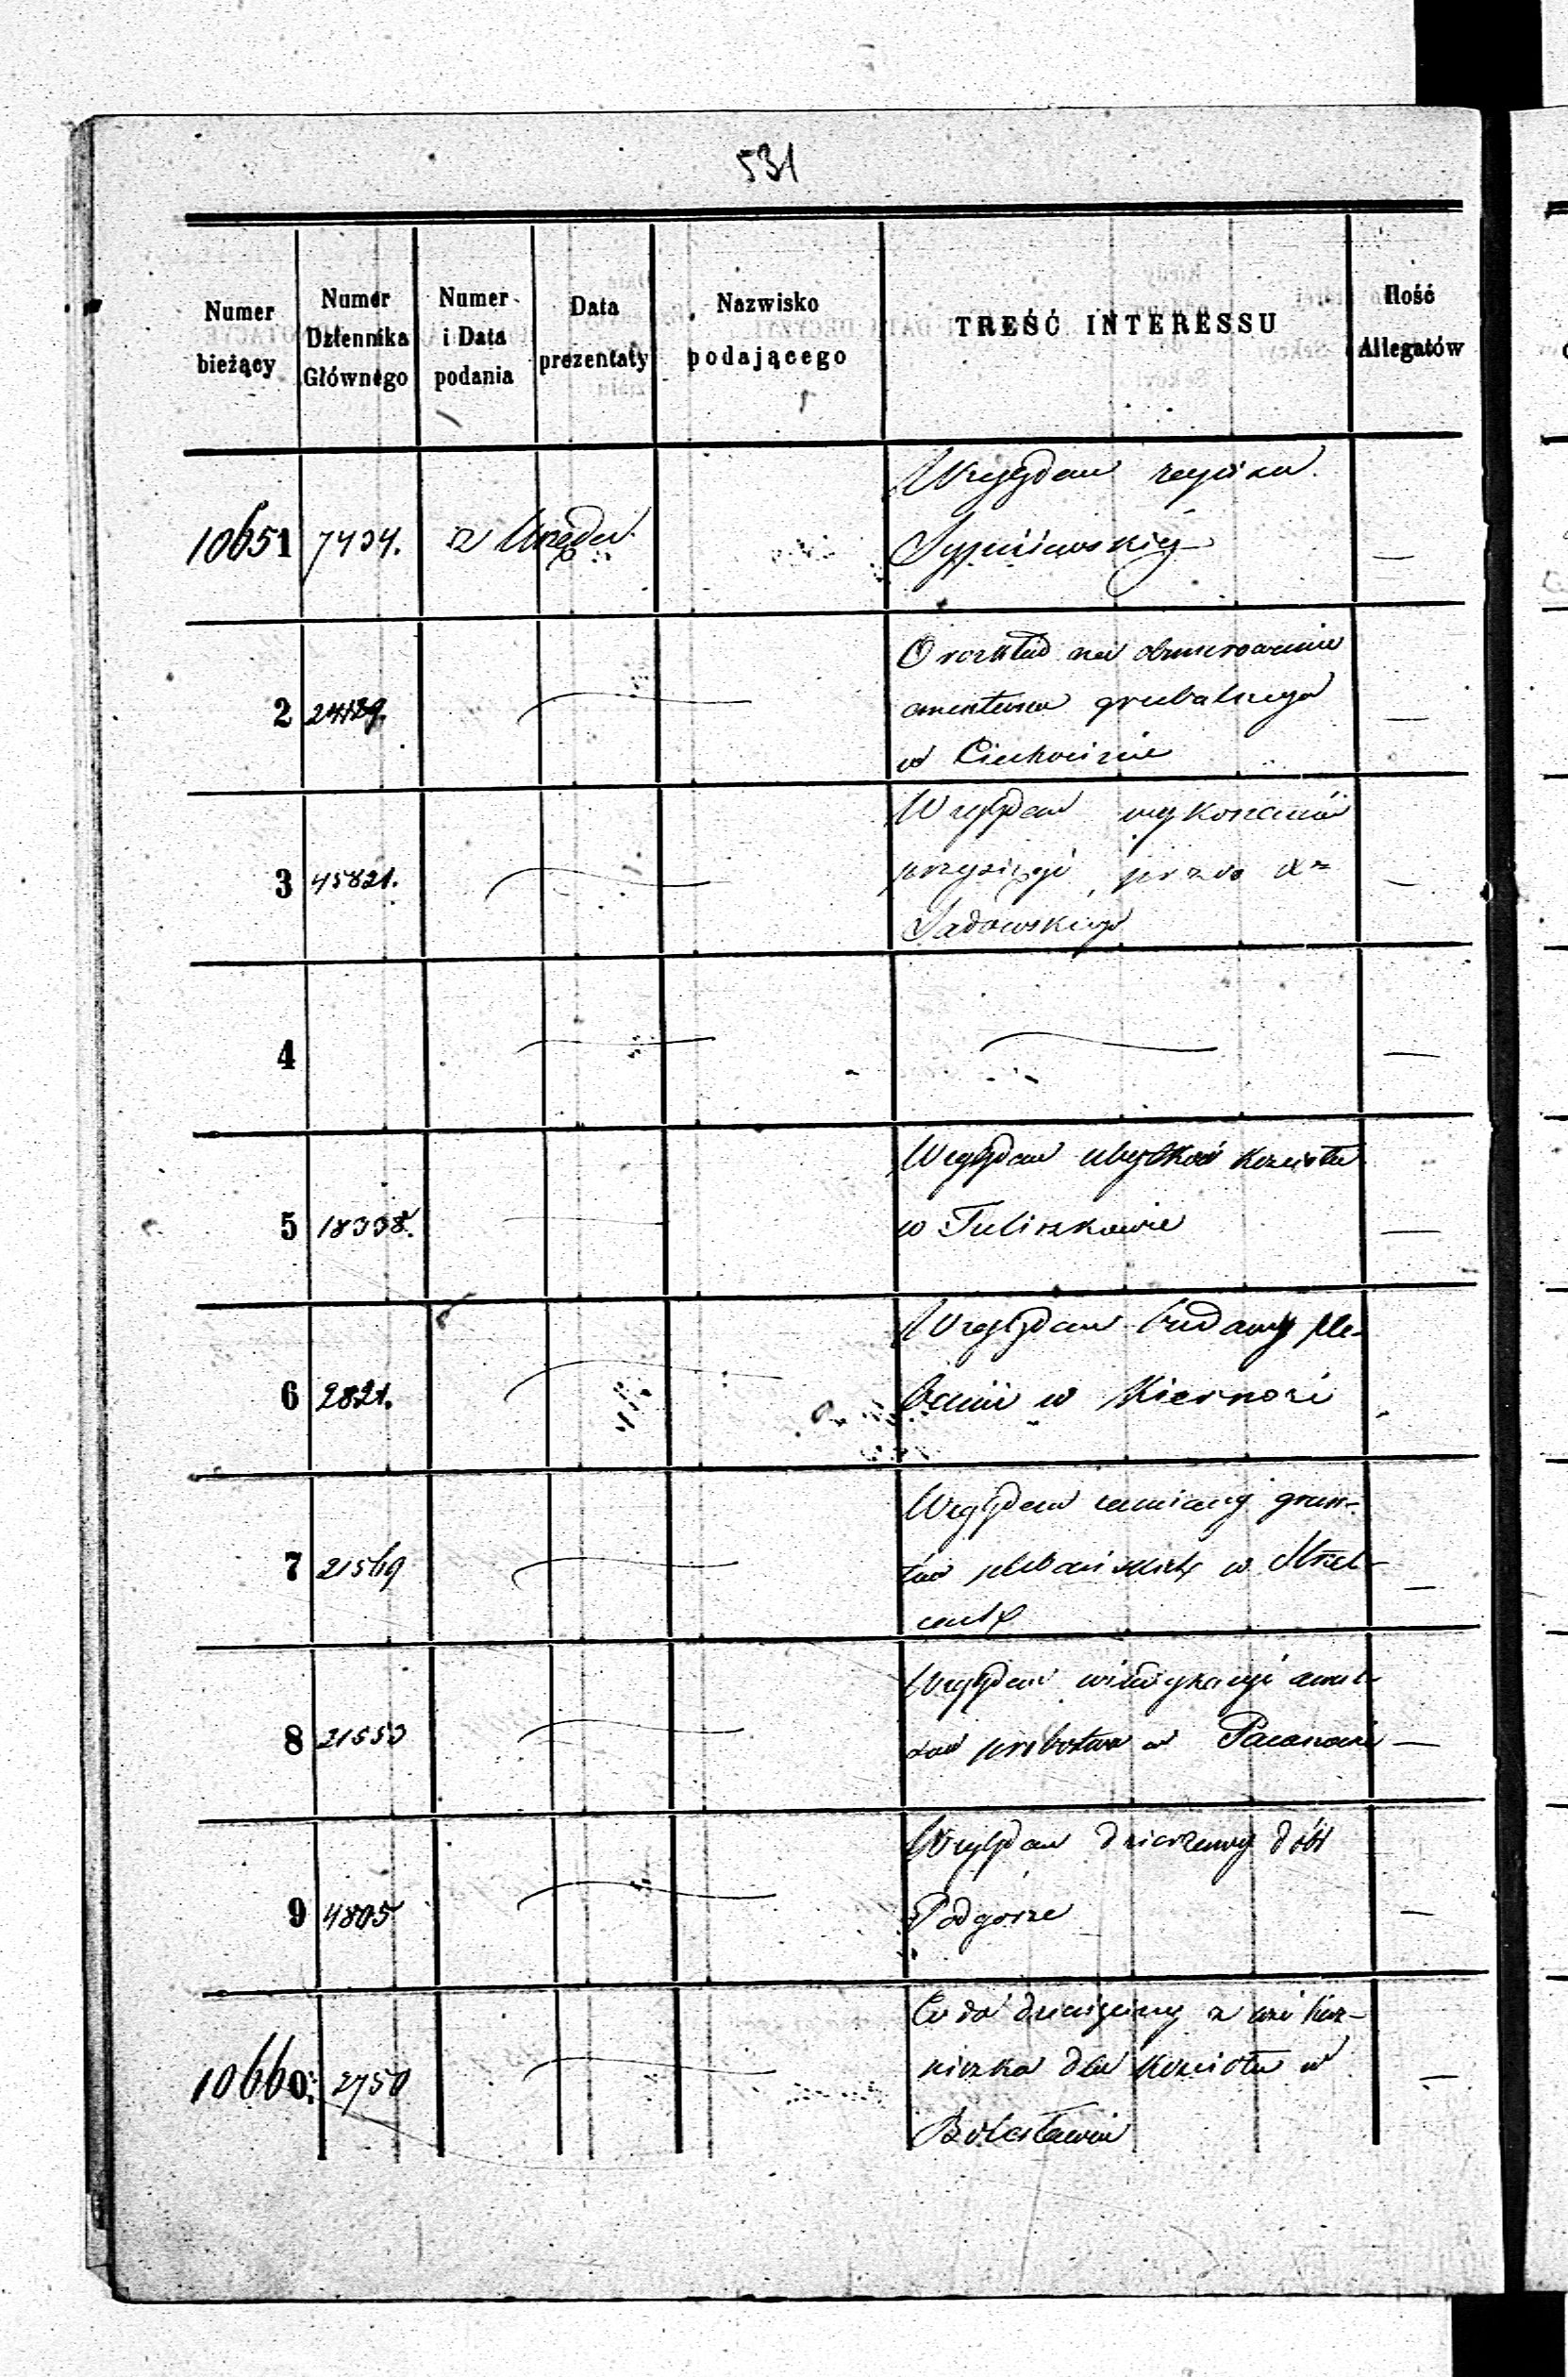 531
Numer bieżący
Numer Dziennika Głównego
Numer i Data podania
Data prezentaty
Nazwisko podającego
TREŚĆ INTERESSU
Ilość Allegatów
10651 7434. z Urzędu Względem
—
2 24189. — O rozkład na obmurowanie
cmentarza grzebalnego
w Ciechocinie
—
3 45821. — Względem wykonania
przysięgi przez Xa
Sadowskiego
—
4 — — —
5 18338. — Względem kościoła
w Tuliszkowie
—
6 2821. — Względem budowy ple-
banii w Kiernozi
7 21569 — Względem zamiany grun-
tów plebańskich w
—
8 21553 — Względem windykacyi
probostwa w Pacanowie
—
9 4805 — Względem dzierżawy dóbr
Podgórze
—
10660. 2750 — Co do dziesięciny z wsi
dla kościoła w
Bolesławiu
—